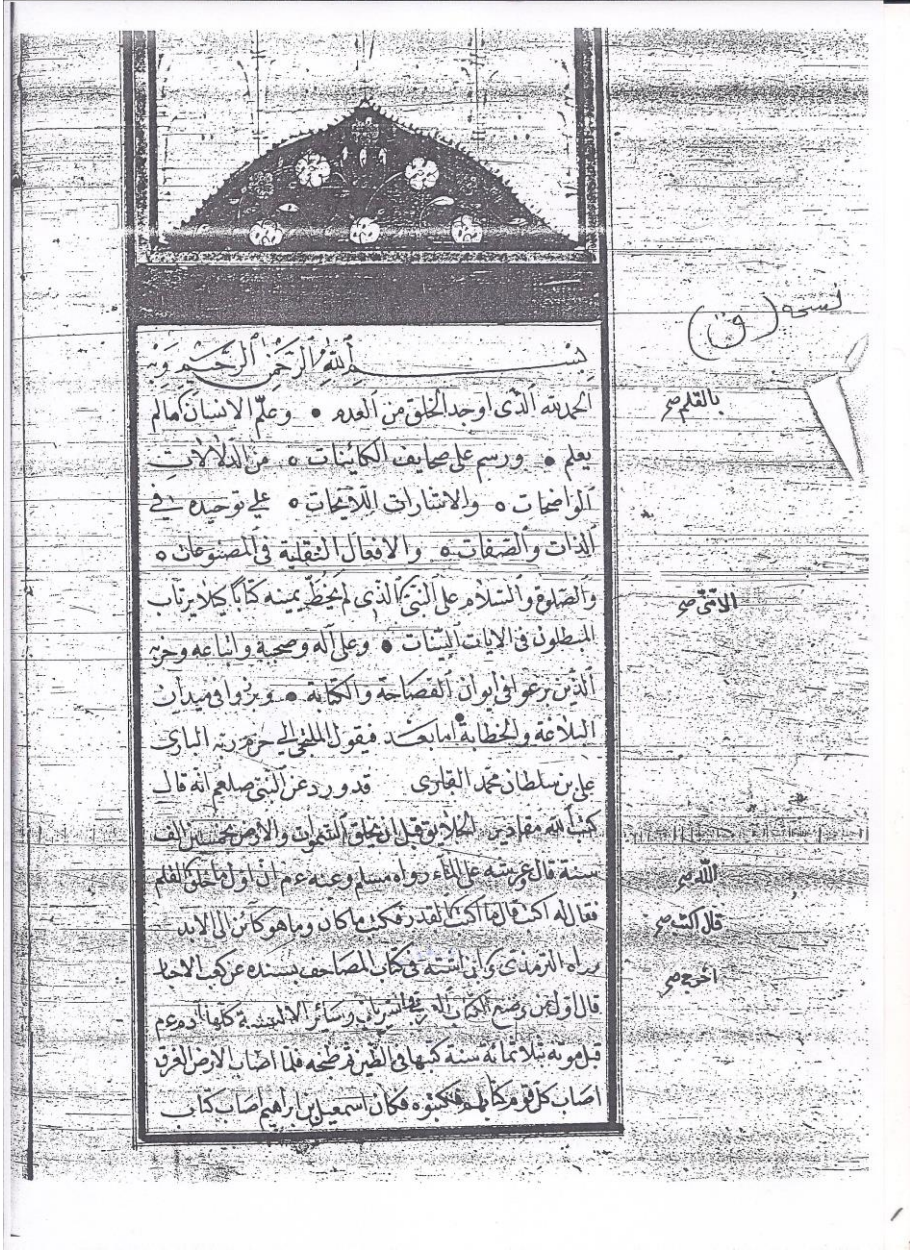 نسخه (ق)
بسم الله الرحمن الرحيم وبه
الحمد لله الذى اوجد الخلق من العدم • وعلّم الانسان مالم
بالقلم صح
يعلم • ورسم على صحايف الكائنات ٥ من الدلالات
الواضحات ٥ والاشارات اللايحات ٥ على توحيده في
الذات والصفات ٥ والافعال النقلية فى المصنوعات ٥
والصلوة والسلام على النبى الذى لم يخط بيمينه كتابا كيلا يرتاب
الامّىّ صح
المبطلون فى الايات البينات • وعلى آله وصحبه واتباعه وحزبه
الذين برعوا فى ايوان الفصاحة والكتابة • وبرزوا فى ميدان
البلاغة والخطابة • اما بعد فيقول الملتجى الى حرم ربه البارى
على بن سلطان محمد القارى قد ورد عن النبى صلعم انه قال
كتب الله مقادير الخلايق قبل ان يخلق السموات والارض بخمسين الف
سنة قال وعرشه على الماء رواه مسلم وعنه ءم ان اول ما خلق القلم
الله صح
فقال له اكتب قال ما اكتب القدر فكتب ما كان وما هو كائن الى الابد
قال اكتب صح
رواه الترمذى وابن اشته فى كتاب المصاحف بسنده عن كعب الاحبار
اخرج صح
قال اول من وضع الكتاب وسائر الالسنة كلها آدم ءم
قبل موته بثلاثمائة سنة كتبها فى الطين ثم طبخه فلما اصاب الارض الغرق
اصاب كل قوم كتابهم فكتبوه فكان اسمعيل بن ابراهيم اصاب كتاب